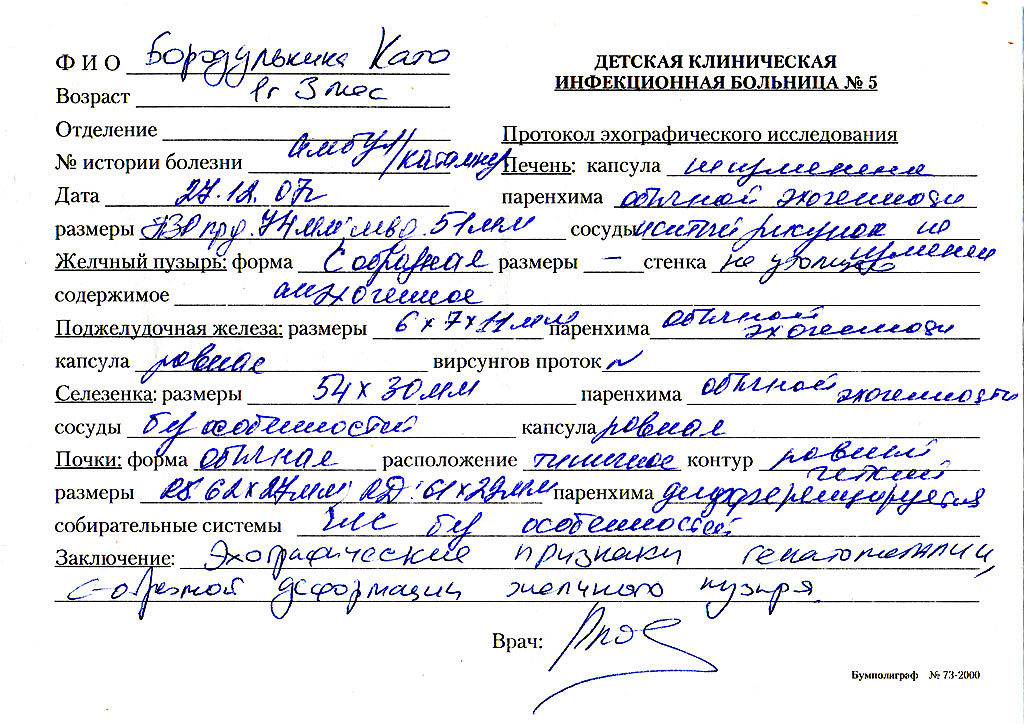 Ф И О Бородулькина Като
Возраст 1г 3 мес
Отделение
№ истории болезни амбул/катамнез
Дата 27.12.07г
ДЕТСКАЯ КЛИНИЧЕСКАЯ
ИНФЕКЦИОННАЯ БОЛЬНИЦА № 5
Протокол эхографического исследования
Печень: капсула не изменена
паренхима обычной эхогенности
размеры ПЗР пр.д. 74 мм лев.д. 51 мм сосуды рисунок не изменен
Желчный пузырь: форма S образная размеры – стенка не утолщена
содержимое анэхогенное
Поджелудочная железа: размеры 6 х 7 х 11 мм паренхима обычной эхогенности
капсула ровная вирсунгов проток N
Селезенка: размеры 54 х 30 мм паренхима обычной эхогенности
сосуды б/у особенностей капсула ровная
Почки: форма обычная расположение типичное контур ровный четкий
размеры RS 62 х 27 мм; RD: 61 х 29 мм паренхима дифференцируется
собирательные системы ЧЛС б/у особенностей
Заключение: Эхографические признаки гепатомегалии,
S-образной деформации желчного пузыря.
Врач:
Бумполиграф № 73-2000